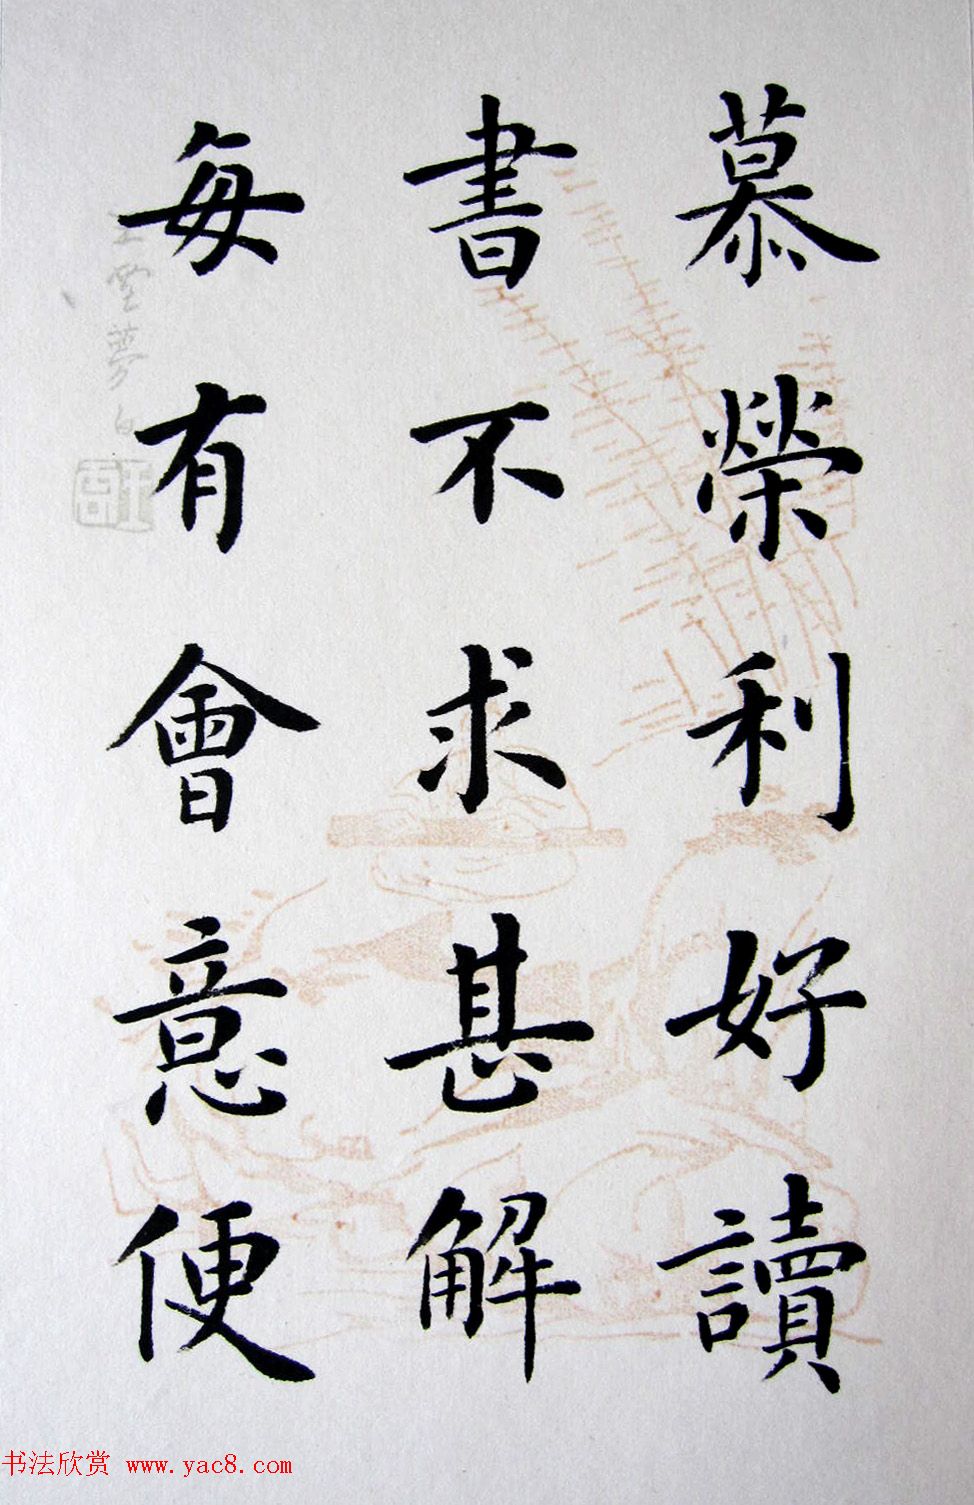 慕榮利好讀
書不求甚解
每有會意便
书法欣赏 www.yac8.com